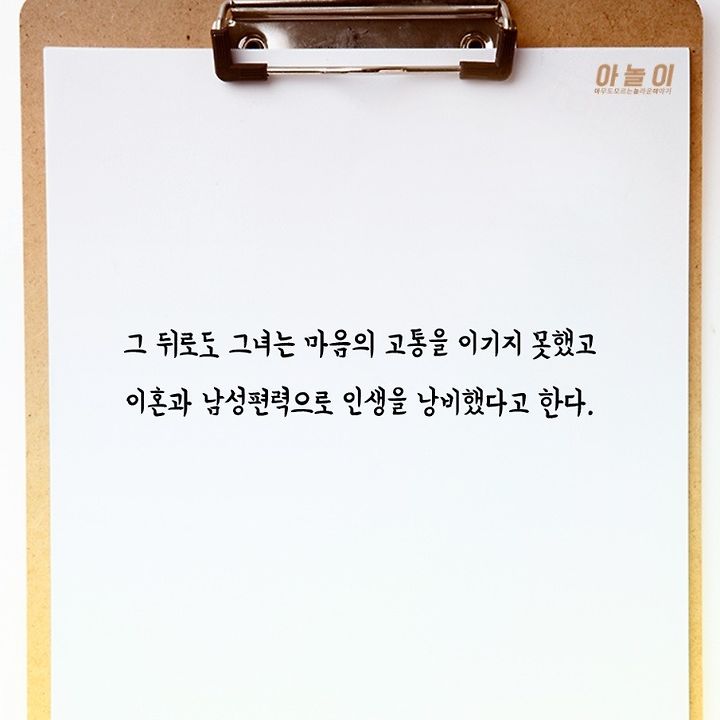 아놀이
아무도모르는놀라운이야기
그 뒤로도 그녀는 마음의 고통을 이기지 못했고
이혼과 남성편력으로 인생을 낭비했다고 한다.